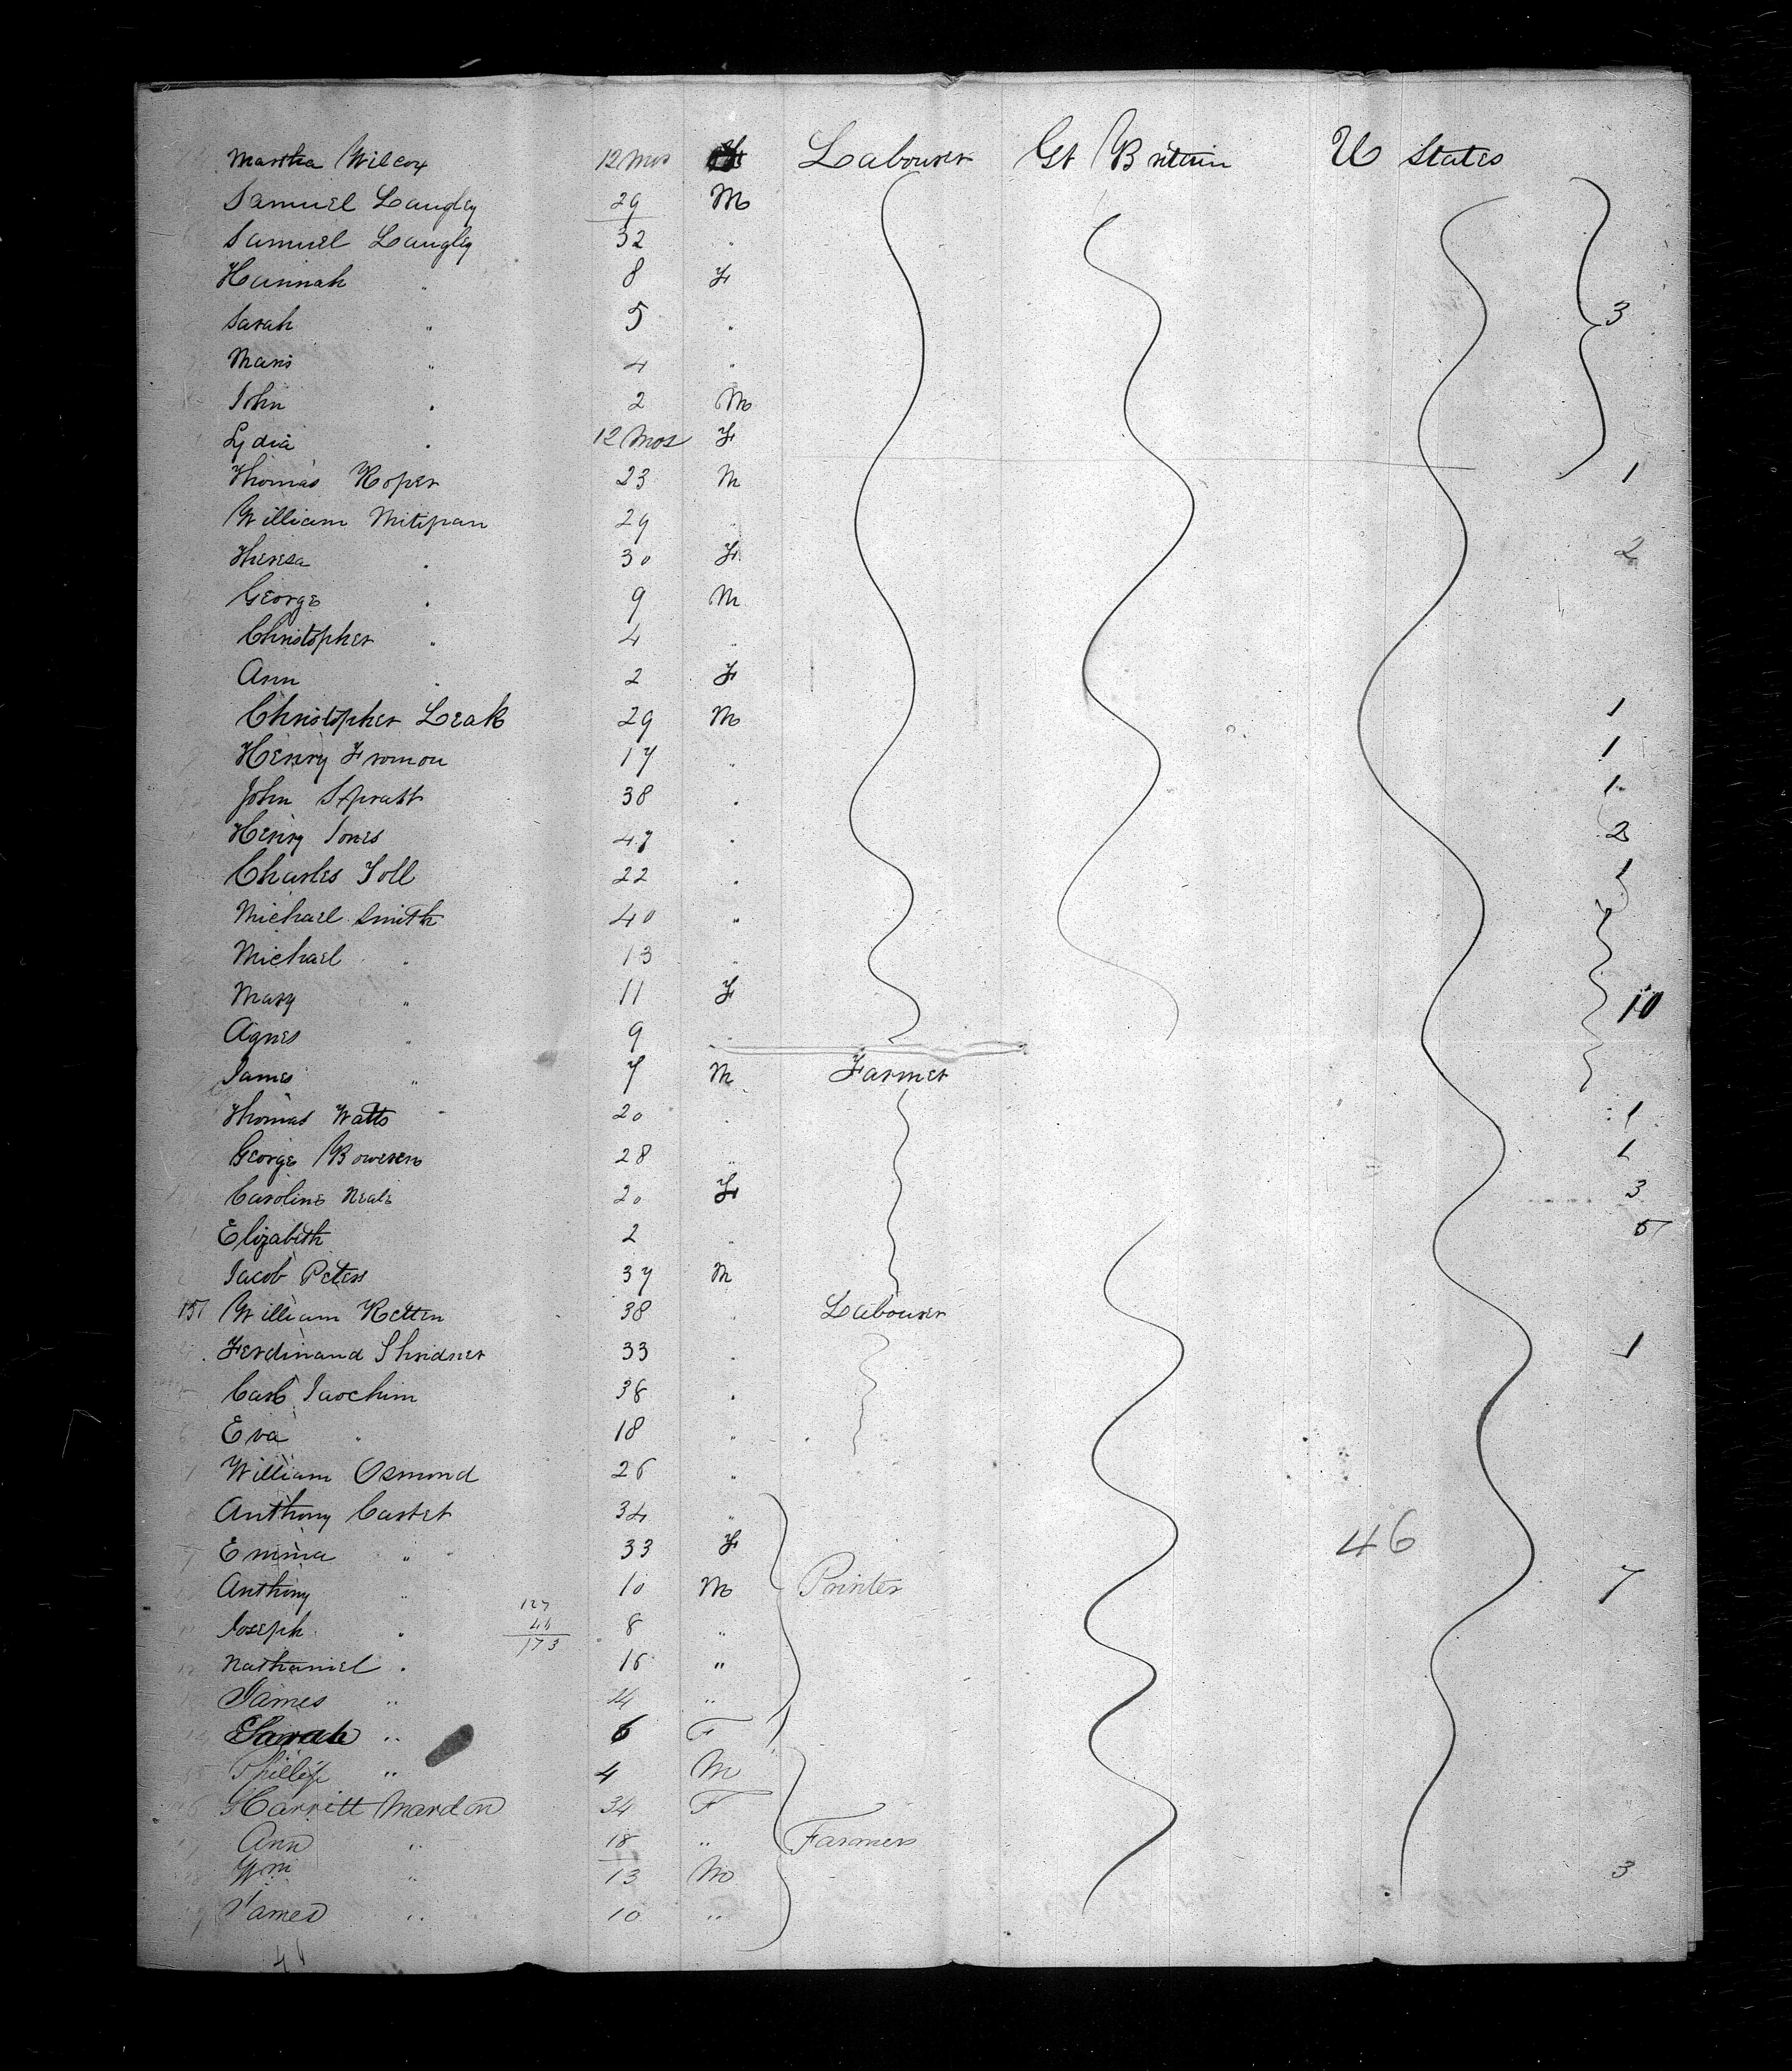 Martha Wilcox 12 Mos F Labourer Gt Britain U States
Samuel Langley 29 M
Samuel Langley 32 "
Hannah " 8 F
Sarah " 5 " 3
" 4 "
John " 2 M
Lydia " 12 Mos F
Thomas Roper 23 M 1
William Mitipan 29 "
Theresa " 30 F 2
George " 9 M
Christopher " 4 "
Ann " 2 F
Christopher Leak 29 M 1
Henry Fromon 17 " 1
John Spratt 38 " 1
Henry Jones 47 " 2
Charles Toll 22 " 1
Michael Smith 40 "
Michael " 13 "
Mary " 11 F 10
Agnes " 9 "
James " 7 M Farmer
Thomas Watts 20 " 1
George 28 " 1
Caroline Neale 20 F 3
Elizabeth 2 " 5
Jacob Peters 37 M
151 William 38 " Labourer
Ferdinand 33 " 1
Carl Jaochim 38 "
Eva " 18 "
William Osmond 26 "
Anthony Carter 34 "
Emma " 33 F 46
Anthony " 10 M Printer 7
127
Joseph " 46 8 "
173
Nathaniel " 16 "
James " 14 "
Sarah " 6 F
Phillip " 4 M
Harriett Mardon 34 F
Ann " 18 " Farmers
Wm " 13 M 3
James " 10 "